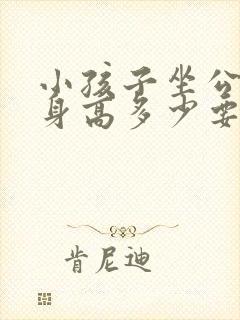 小孩子坐公
身高多少要
肯尼迪